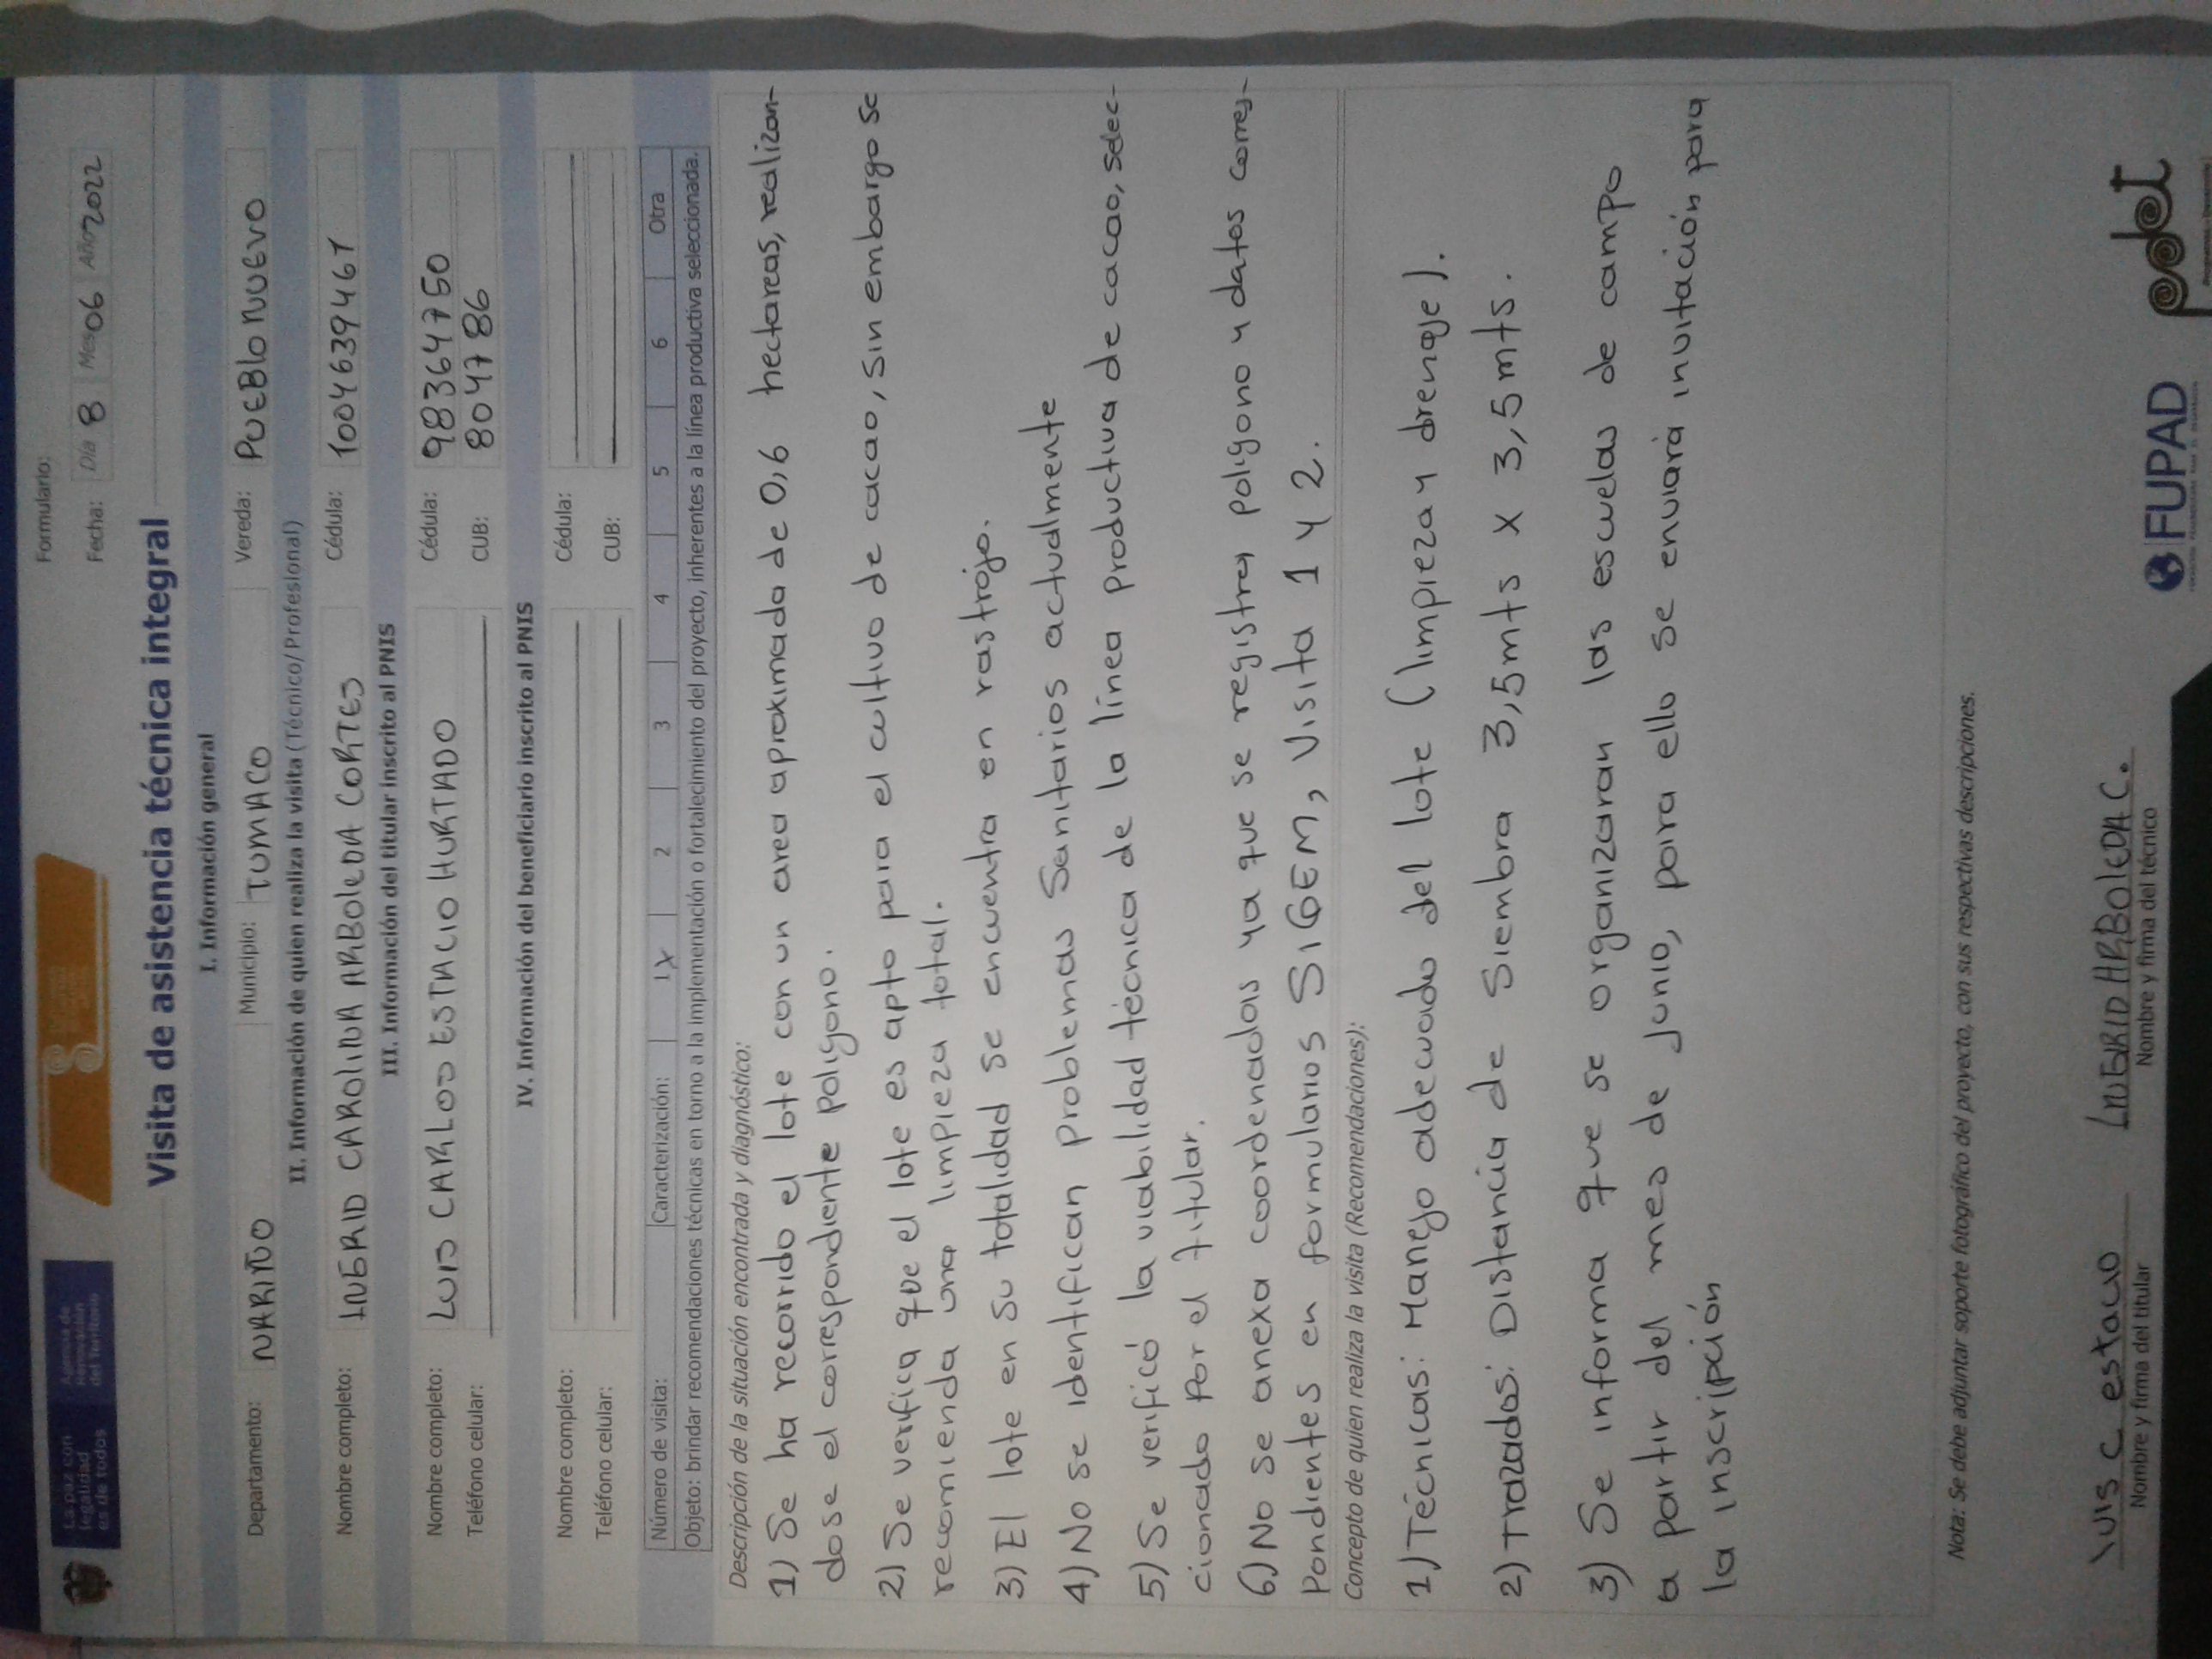 La paz con
legalidad
es de todos
Agencia de
Renovación
del Territorio
Formulario:
Fecha: Día 8 Mes 06 Año 2022
Visita de asistencia técnica integral
I. Información general
Departamento: NARIÑO Municipio: TUMACO Vereda: PUEBlo NUEVO
II. Información de quien realiza la visita (Técnico/Profesional)
Nombre completo: INGRID CAROLINA ARBOLEDA CORTES Cédula: 1004639461
III. Información del titular inscrito al PNIS
Nombre completo: LUIS CARLOS ESTACIO HURTADO Cédula: 98364750
Teléfono celular: CUB: 804786
IV. Información del beneficiario inscrito al PNIS
Nombre completo: Cédula:
Teléfono celular: CUB:
Número de visita: Caracterización: 1 X 2 3 4 5 6 Otra
Objeto: brindar recomendaciones técnicas en torno a la implementación o fortalecimiento del proyecto, inherentes a la línea productiva seleccionada.
Descripción de la situación encontrada y diagnóstico:
1) Se ha recorrido el lote con un area aproximada de 0,6 hectareas, realizan-
dose el correspondiente poligono.
2) Se verifica que el lote es apto para el cultivo de cacao, sin embargo se
recomienda una limpieza total.
3) El lote en su totalidad se encuentra en rastrojo.
4) No se identifican problemas Sanitarios actualmente
5) Se verificó la viabilidad técnica de la línea productiva de cacao, selec-
cionado por el titular.
6) No se anexa coordenadas ya que se registra poligono y datos corres-
pondientes en formularios SIGEM, Visita 1 y 2.
Concepto de quien realiza la visita (Recomendaciones):
1) Técnicas: Manejo adecuado del lote (limpieza y drenaje).
2) Trazados: Distancia de Siembra 3,5mts x 3,5mts.
3) Se informa que se organizaran las escuelas de campo
a partir del mes de Junio, para ello se enviará invitación para
la inscripción
Nota: Se debe adjuntar soporte fotográfico del proyecto, con sus respectivas descripciones.
luis c estacio INGRID ARBOLEDA C.
Nombre y firma del titular Nombre y firma del técnico
FUPAD pdet